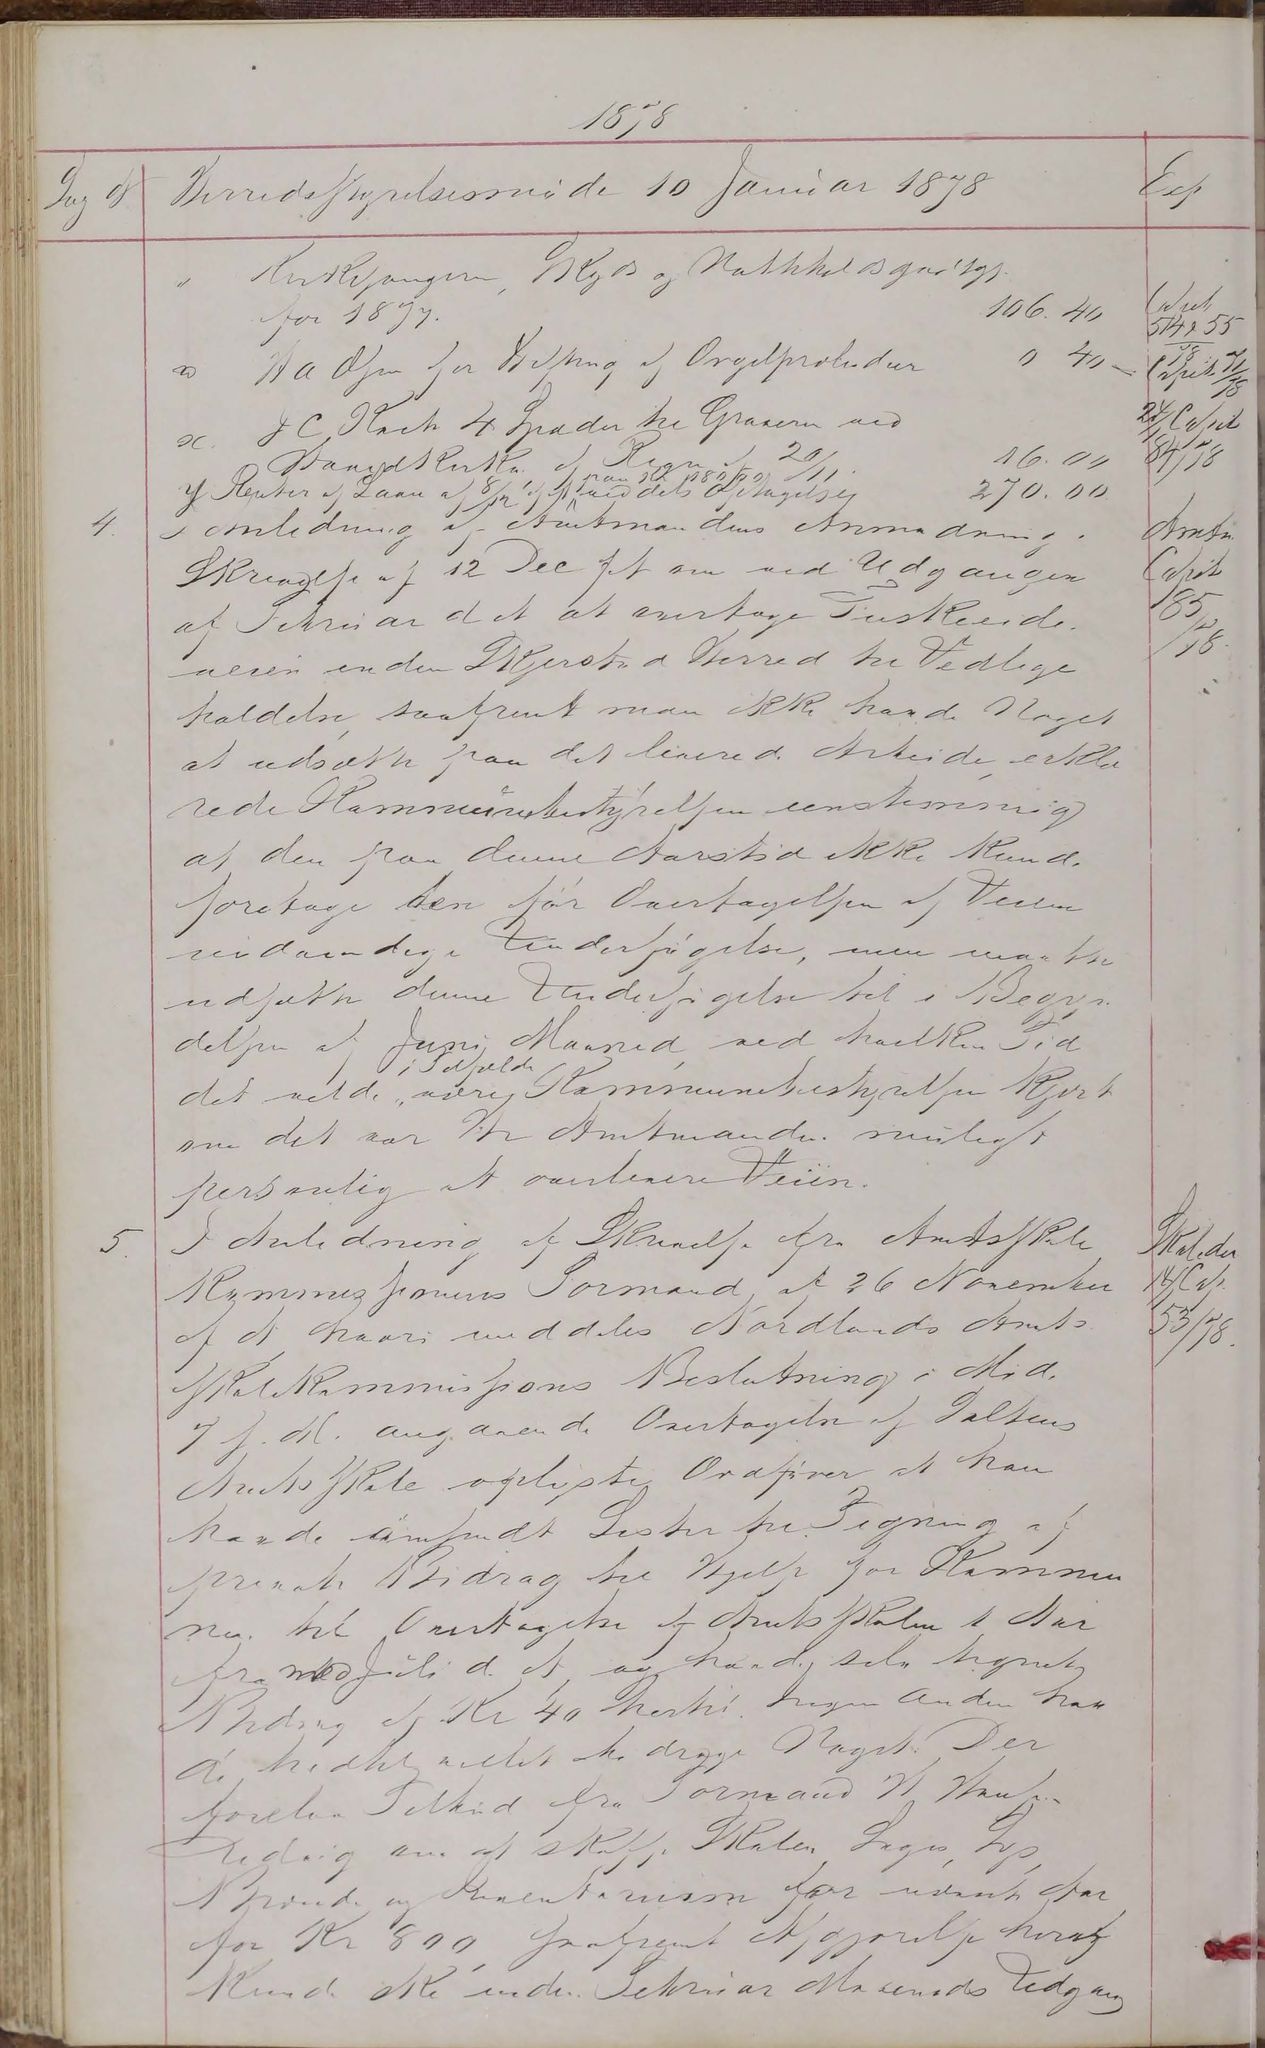 1878
Sag № Herredsstyrelsesmöde 10 Januar 1878 Exp
" Kirkesangeren, Skyds og Natteholdsgodtgj.
for 1877. 106. 40 Copieb
54 & 55
78
H A Olsen for Stiftning af Orgelpreludier 0 40
x. J C Koch 4 Spader til Graveren ved
Kirke af Regn af 20/11. 16. 00
y Renter af Laan af ved dets Optagelse 270. 00
4. I Anledning af Amtmandens Anmodning i Amtm
Skrivelse af 12 Dec f A om ved Udgangen Copieb
af Februar d A at overtage Fuskeeide 85
veien inden Skjerstad Herred til Vedlige /78.
holdelse, saafremt man ikke havde Noget
at udsætte paa det leverede Arbeide, erklæ
rede Kommunebestyrelsen eenstemmig
at den paa denne Aarstid ikke kunde
foretage den för Overtagelsen af Veien
nödvendige Undersögelse, men maatte
udsætte denne Undersögelse til i Begyn
delsen af Juni Maaned, ved hvilken Tid
i Tilfælde
det vilde være Kommunebestyrelsen kjært
om det var Hr Amtmanden muligt
personlig at overlevere Veien.
5. I Anledning af Skrivelse fra Amtsskole
Kommissionens Formand af 26 November
f A, hvori meddeles Nordlands Amts 53/78.
skolekommissions Beslutning i Möde
7 f. M. angaaende Overtagelse af Saltens
Amtsskole oplyste Ordförer at han
havde omsendt Lister til Tegning af
private Bidrag til Hjælp for Kommu
nen til Overtagelse af Amtsskolen 1 Aar
fra Juli d A og havde selv tegnet
Bidrag af Kr 40 hertil. Ingen Anden hav
de hertil villet bidrage Noget. Der
forelaa Tilbud fra Formand H
om at skaffe Skolen Logis, Lys,
Brænde og Inventarium for næste Aar
for Kr 800, saafremt Afgjörelse herom
kunde ske inden Februar Maaneds Udgang